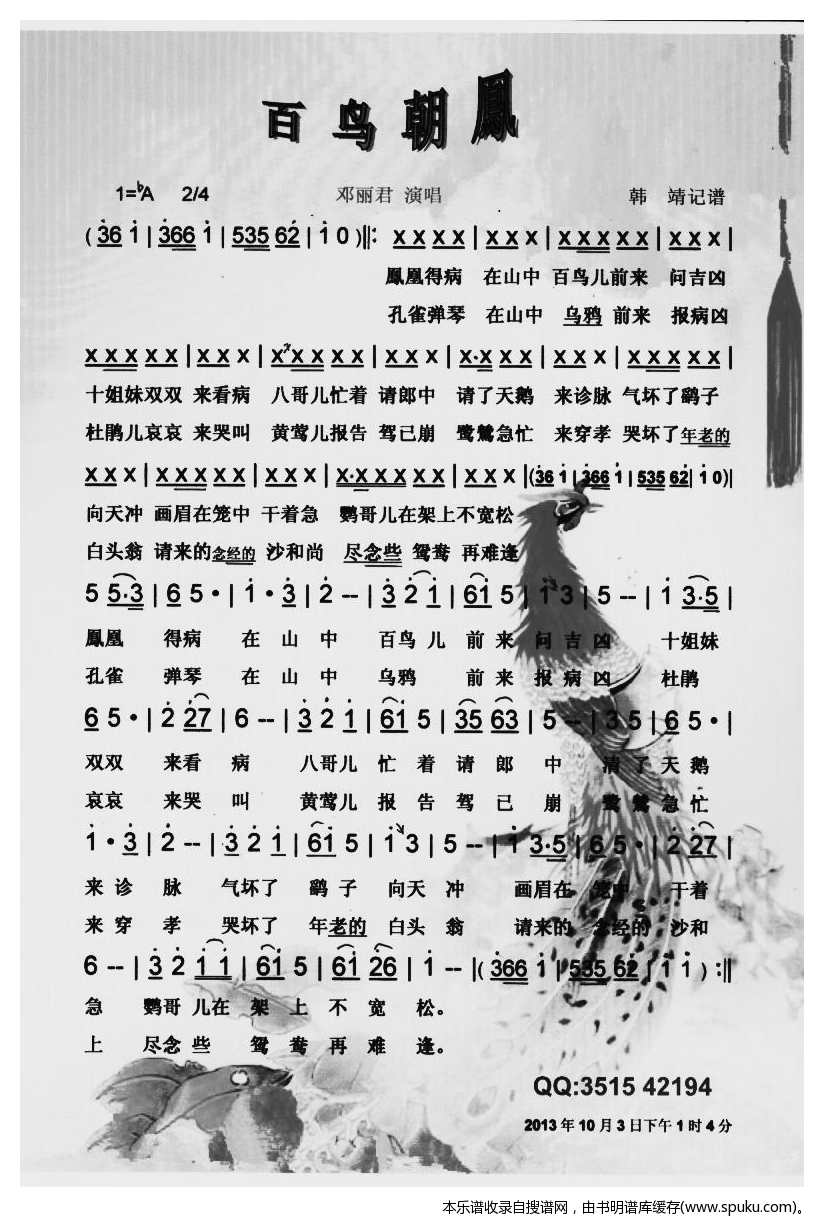 百鸟朝鳳
1=♭A 2/4 邓丽君 演唱 韩 靖记谱
( 36 1 | 366 1 | 535 62 | 1 0 )‖: X X X X | X X X | X X X X X | X X X |
鳳凰得病 在山中 百鸟儿前来 问吉凶
孔雀弹琴 在山中 乌鸦 前来 报病凶
X X X X X | X X X | X X X X X | X X X | X·X X X | X X X | X X X X X |
十姐妹双双 来看病 八哥儿忙着 请郎中 请了天鹅 来诊脉 气坏了鹞子
杜鹃儿哀哀 来哭叫 黄莺儿报告 驾已崩 鹭鸶急忙 来穿孝 哭坏了年老的
X X X | X X X X X | X X X | X·X X X X X | X X X | (36 1 | 366 1 | 535 62 | 1 0)|
向天冲 画眉在笼中 干着急 鹦哥儿在架上不宽松
白头翁 请来的念经的 沙和尚 尽念些 鸳鸯 再难逢
5 5·3 | 6 5 · | 1 · 3 | 2 -- | 3 2 1 | 61 5 | 1 3 | 5 -- | 1 3·5 |
鳳凰 得病 在山中 百鸟儿 前来问吉凶 十姐妹
孔雀 弹琴 在山中 乌鸦 前来报病凶 杜鹃
6 5 · | 2 27 | 6 -- | 3 2 1 | 61 5 | 35 63 | 5 -- | 3 5 | 6 5 · |
双双 来看 病 八哥儿 忙着请郎 中 请了天鹅
哀哀 来哭 叫 黄莺儿 报告驾已 崩 鹭鸶急忙
1 · 3 | 2 -- | 3 2 1 | 61 5 | 1 3 | 5 -- | 1 3·5 | 6 5 · | 2 27 |
来诊 脉 气坏了 鹞子 向天 冲 画眉在 笼中 干着
来穿 孝 哭坏了 年老的 白头 翁 请来的 念经的 沙和
6 -- | 3 2 1 1 | 61 5 | 61 26 | 1 -- | ( 366 1 | 535 62 | 1 1 ) :‖
急 鹦哥 儿在 架上 不宽 松。
上 尽念些 鸳鸯 再难 逢。
QQ:3515 42194
2013 年 10 月 3 日下午 1 时 4 分
本乐谱收录自搜谱网，由书明谱库缓存(www.spuku.com)。